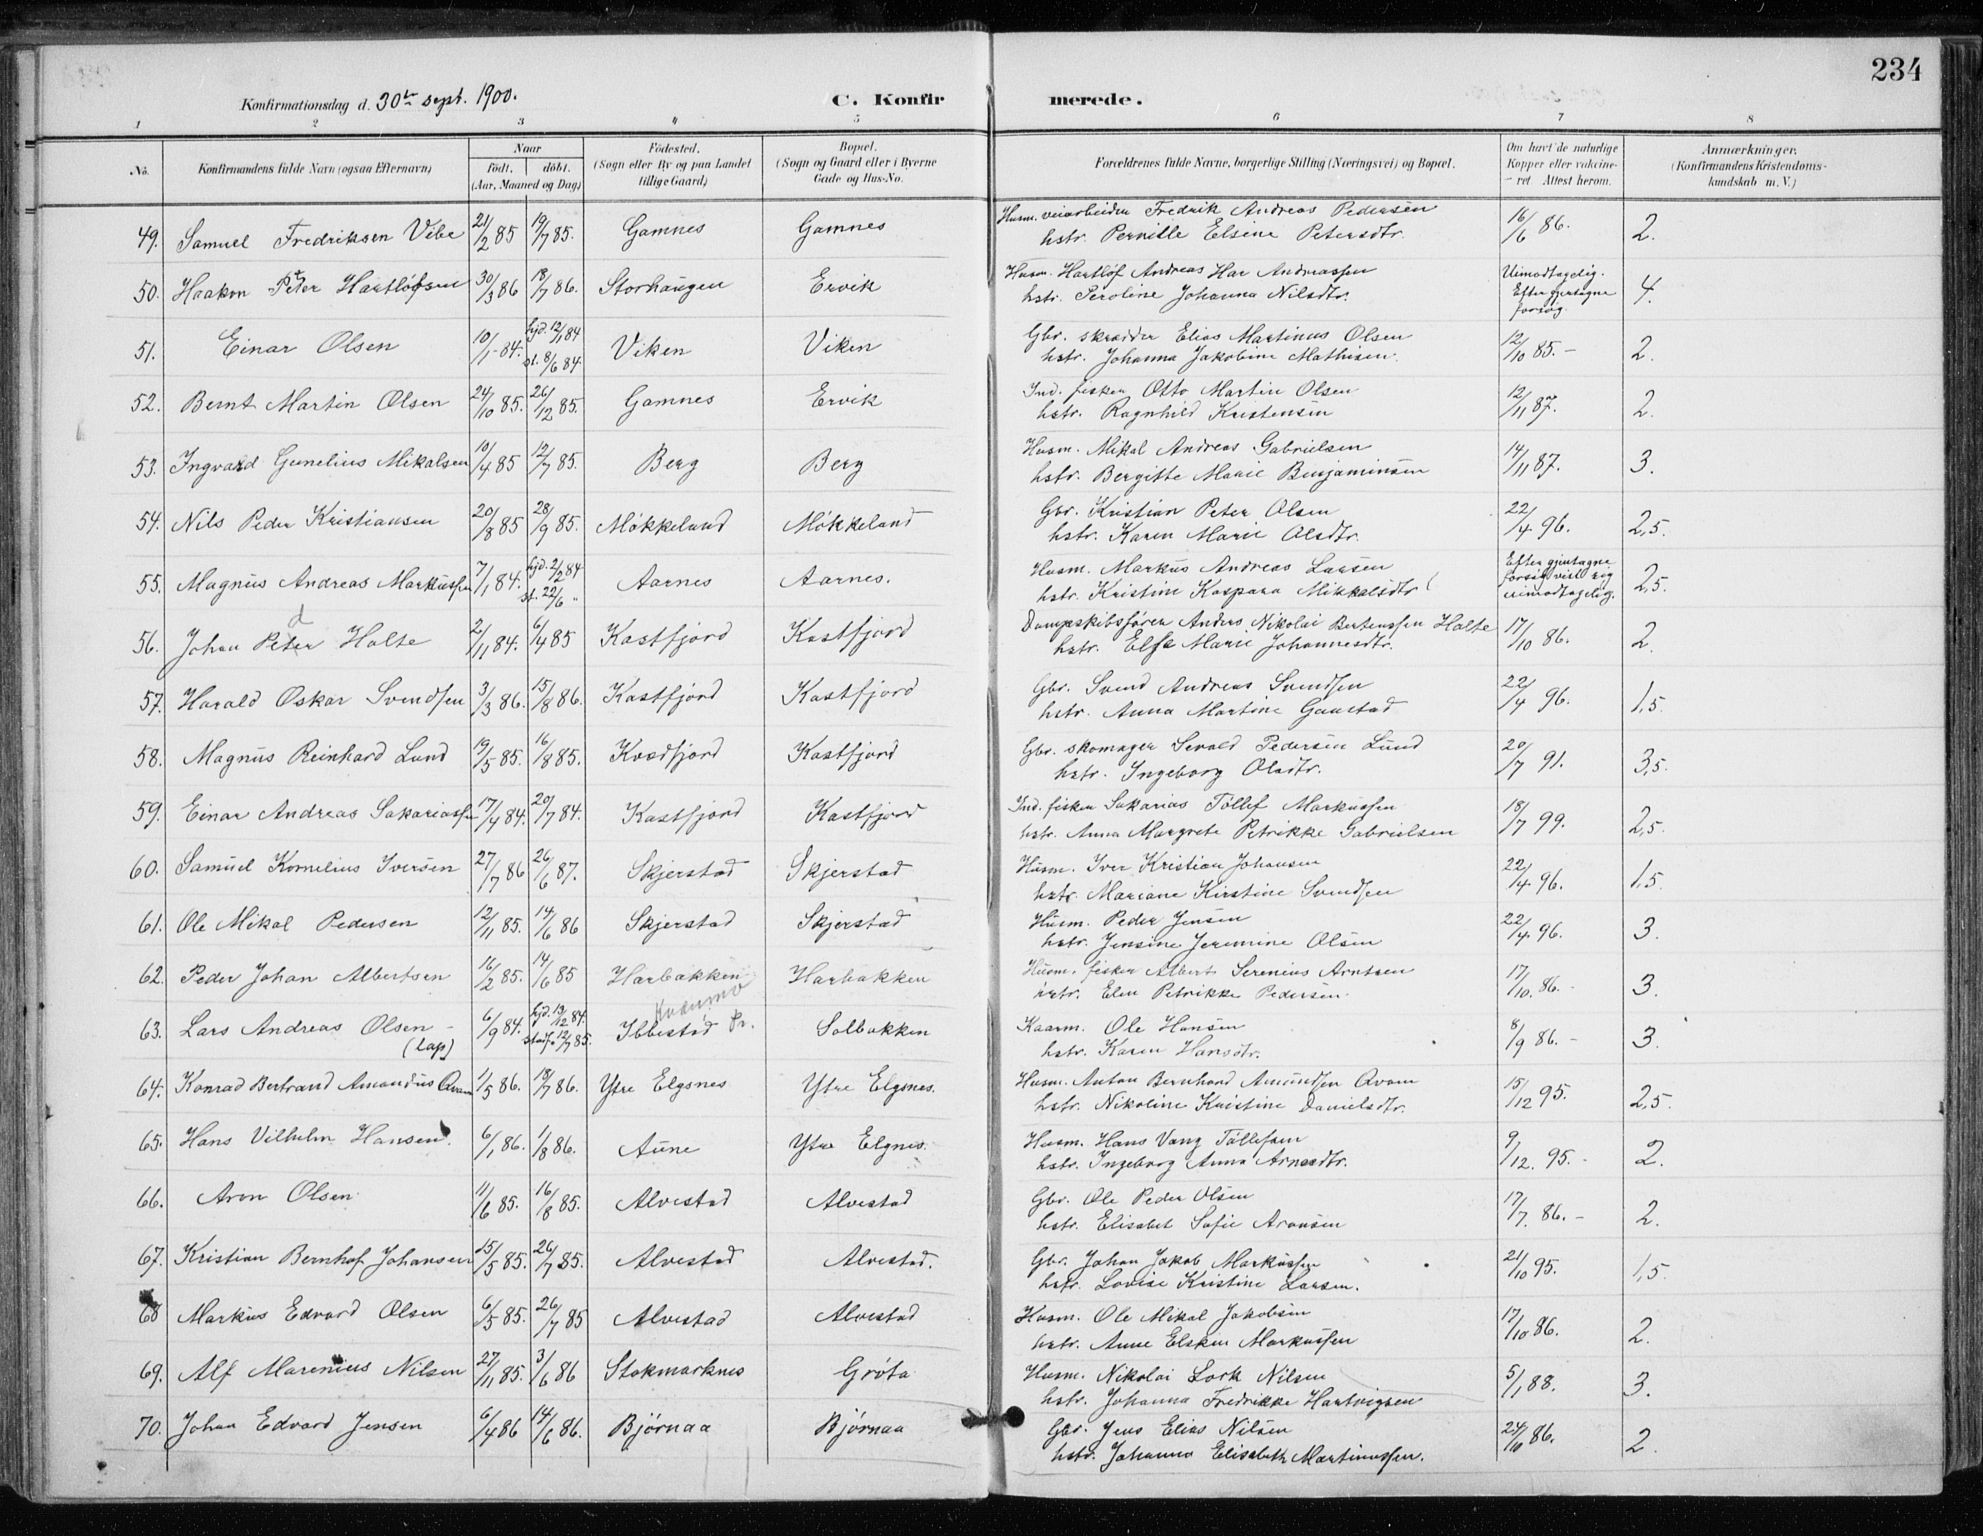 234
Konfirmationsdag d. 30te sept. 1900. C. Konfirmerede.
1 2 3 4 5 6 7 8
No. Konfirmandens fulde Navn (ogsaa Efternavn) Naar født. døbt. (Aar, Maaned og Dag) Fødested. (Sogn eller By og paa Landet tillige Gaard) Bopæl. (Sogn og Gaard eller i Byerne Gade og Hus-No. Forældrenes fulde Navne, borgerlige Stilling (Næringsvei) og Bopæl. Om havt de naturlige Kopper eller vaccineret Attest herom. Anmærkninger. (Konfirmandens Kristendomskundskab m. V.)
49. Samuel Fredriksen Vibe 21/2 85 19/7 85. Gamnes Gamnes Husm. veiarbeider Fredrik Andreas Pedersen 16/6 86. 2.
hstr. Pernille Elsine Petersdtr.
50. Haakon Peter Hartløfsen 30/3 86 18/7 86. Storhaugen Ervik Husm. Hartløf Andreas Har Andreassen Uimodtagelig. Efter gjentagne forsøg. 4.
hstr. Peroline Johanna Nilsdtr.
51. Einar Olsen 10/1 84. hjd. 12/1 84 st. 8/6 84. Viken Viken Gbr. skrædder Elias Martinus Olsen 12/10 85.- 2.
hstr. Johanna Jakobine Mathisen.
52. Bernt Martin Olsen 24/10 85. 26/12 85. Gamnes Ervik Ind. fisker Otto Martin Olsen 12/11 87. 2.
hstr. Ragnhild Kristensen
53. Ingvald Gunelius Mikalsen 10/4 85 12/7 85. Berg Berg Husm. Mikal Andreas Gabrielsen 14/11 87. 3.
hstr. Bergitte Marie Benjaminsen
54. Nils Peder Kristiansen 20/8 85 28/9 85. Møkkeland Møkkeland Gbr. Kristian Peter Olsen 22/4 96. 2,5.
hstr. Karen Marie Olsdtr.
55. Magnus Andreas Markussen 7/1 84. hjd. 2/2 84 st. 22/6 " Aarnes Aarnes. Husm. Markus Andreas Larsen Efter gjentagne forsøg vist sig uimodtagelig. 2,5.
hstr. Kristine Kaspara Mikkalsdtr
56. Johan Peter Holte 2/11 84. 6/4 85 Kastfjord Kastfjord Dampskibsfører Anders Nikolai Bertenssen Holte 17/10 86. 2.
hstr. Else Marie Johannesdtr.
57. Harald Oskar Svendsen 3/3 86. 15/8 86. Kastfjord Kastfjord Gbr. Svend Andreas Svendsen 22/4 96. 1,5.
hstr. Anna Martine Gaustad
58. Magnus Reinhard Lund 19/5 85. 16/8 85. Kvedfjord Kastfjord Gbr. skomager Sevald Pedersen Lund 20/7 91. 3,5.
hstr. Ingeborg Olsdtr.
59. Einar Andreas Sakariassen 17/4 84. 20/7 84. Kastfjord Kastfjord Ind. fisker Sakarias Tøllef Markussen 18/7 99. 2,5.
hstr. Anna Margrete Petrikke Gabrielsen
60. Samuel Kornelius Iversen 27/7 86 26/6 87. Skjerstad Skjerstad Husm. Iver Kristian Johansen 22/4 96. 1,5.
hstr. Mariane Kirstine Svendsen
61. Ole Mikal Pedersen 12/11 85. 14/6 86 Skjerstad Skjerstad Husm. Peder Jensen 22/4 96. 3.
hstr. Jensine Jeremine Olsen
62. Peder Johan Albertsen 16/2 85. 14/6 85 Harbakken Harbakken Husm. fisker Albert Serenius Arntsen 17/10. 86.- 3.
hstr. Elen Petrikke Pedersen.
63. Lars Andreas Olsen (lap) 6/9 84. hjd. 19/12 84. stadf. 12/7 85. Ibbestad Solbakken Kaarm. Ole Hansen 8/9 86.- 3.
hstr. Karen Hansdtr.
64. Konrad Bertrand Amandus Qvam 1/5 86. 18/7 86. Ytre Elgsnes Ytre Elgsnes. Husm. Anton Bernhard Amundsen Qvam 15/12 95. 2,5.
hstr. Nikoline Kristine Danielsdtr.
65. Hans Vilhelm Hansen. 6/1 86. 1/8 86. Aune Ytre Elgnes. Husm. Hans Vang Tøllefsen 9/12. 95.- 2.
hstr. Ingeborg Anna Arnesdtr.
66. Aron Olsen 11/6 85. 16/8 85. Alvestad Alvestad Gbr. Ole Peder Olsen 17/7. 86.- 2.
hstr. Elisabet Sofie Aronsen
67. Kristian Bernhof Johansen 15/5 85. 26/7 85. Alvestad Alvestad. Gbr. Johan Jakob Markussen 21/10 95. 1,5.
hstr. Lovise Kristine Larsen.
68 Markus Edvard Olsen 6/5 85. 26/7 85 Alvestad Alvestad Husm. Ole Mikal Jakobsen 17/10 86. 2.
hstr. Anne Elsken Markussen
69. Alf Marenius Nilsen 27/11 85. 3/6 86 Stokmarknes Grøta Husm. Nikolai Lork Nilsen 5/1 88. 3.
hstr. Johanna Fredrikke Hartvigsen
70. Johan Edvard Jensen 6/4 86 14/6 86. Bjørnaa Bjørnaa Gbr. Jens Elias Nilsen 24/10 86. 2.
hstr. Johanna Elisabeth Martinussen.